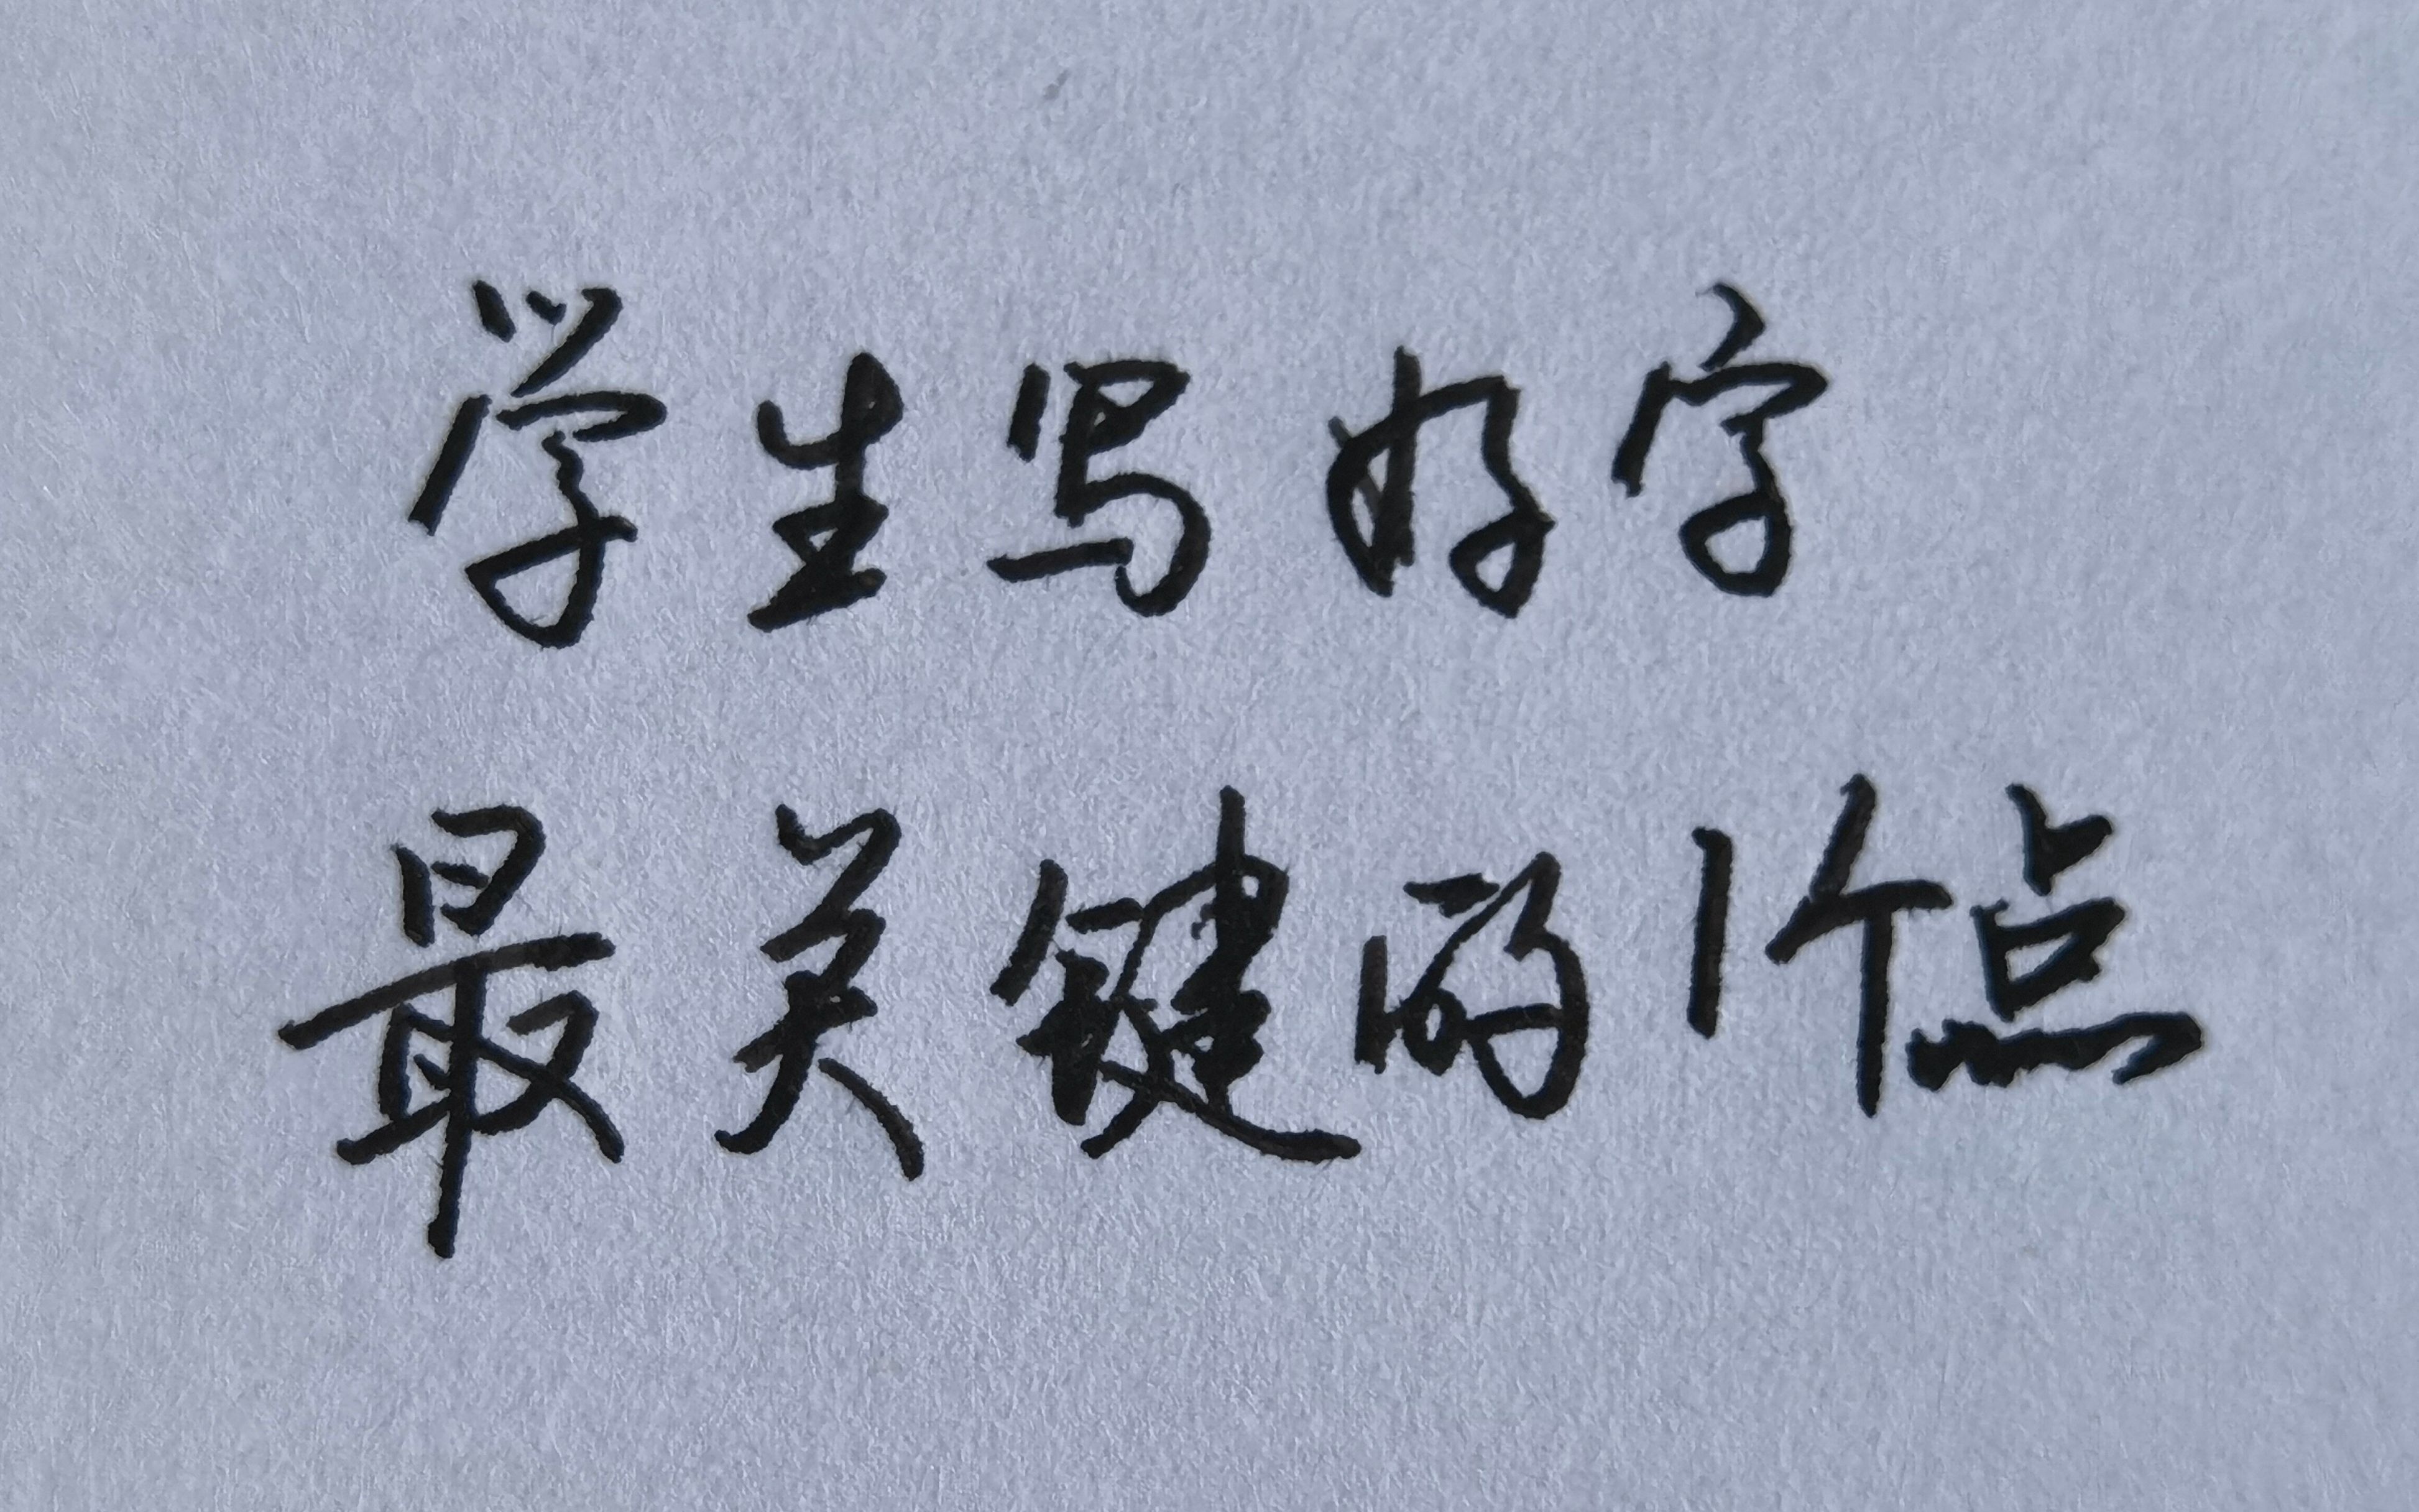 学生写好字
最关键的1个点